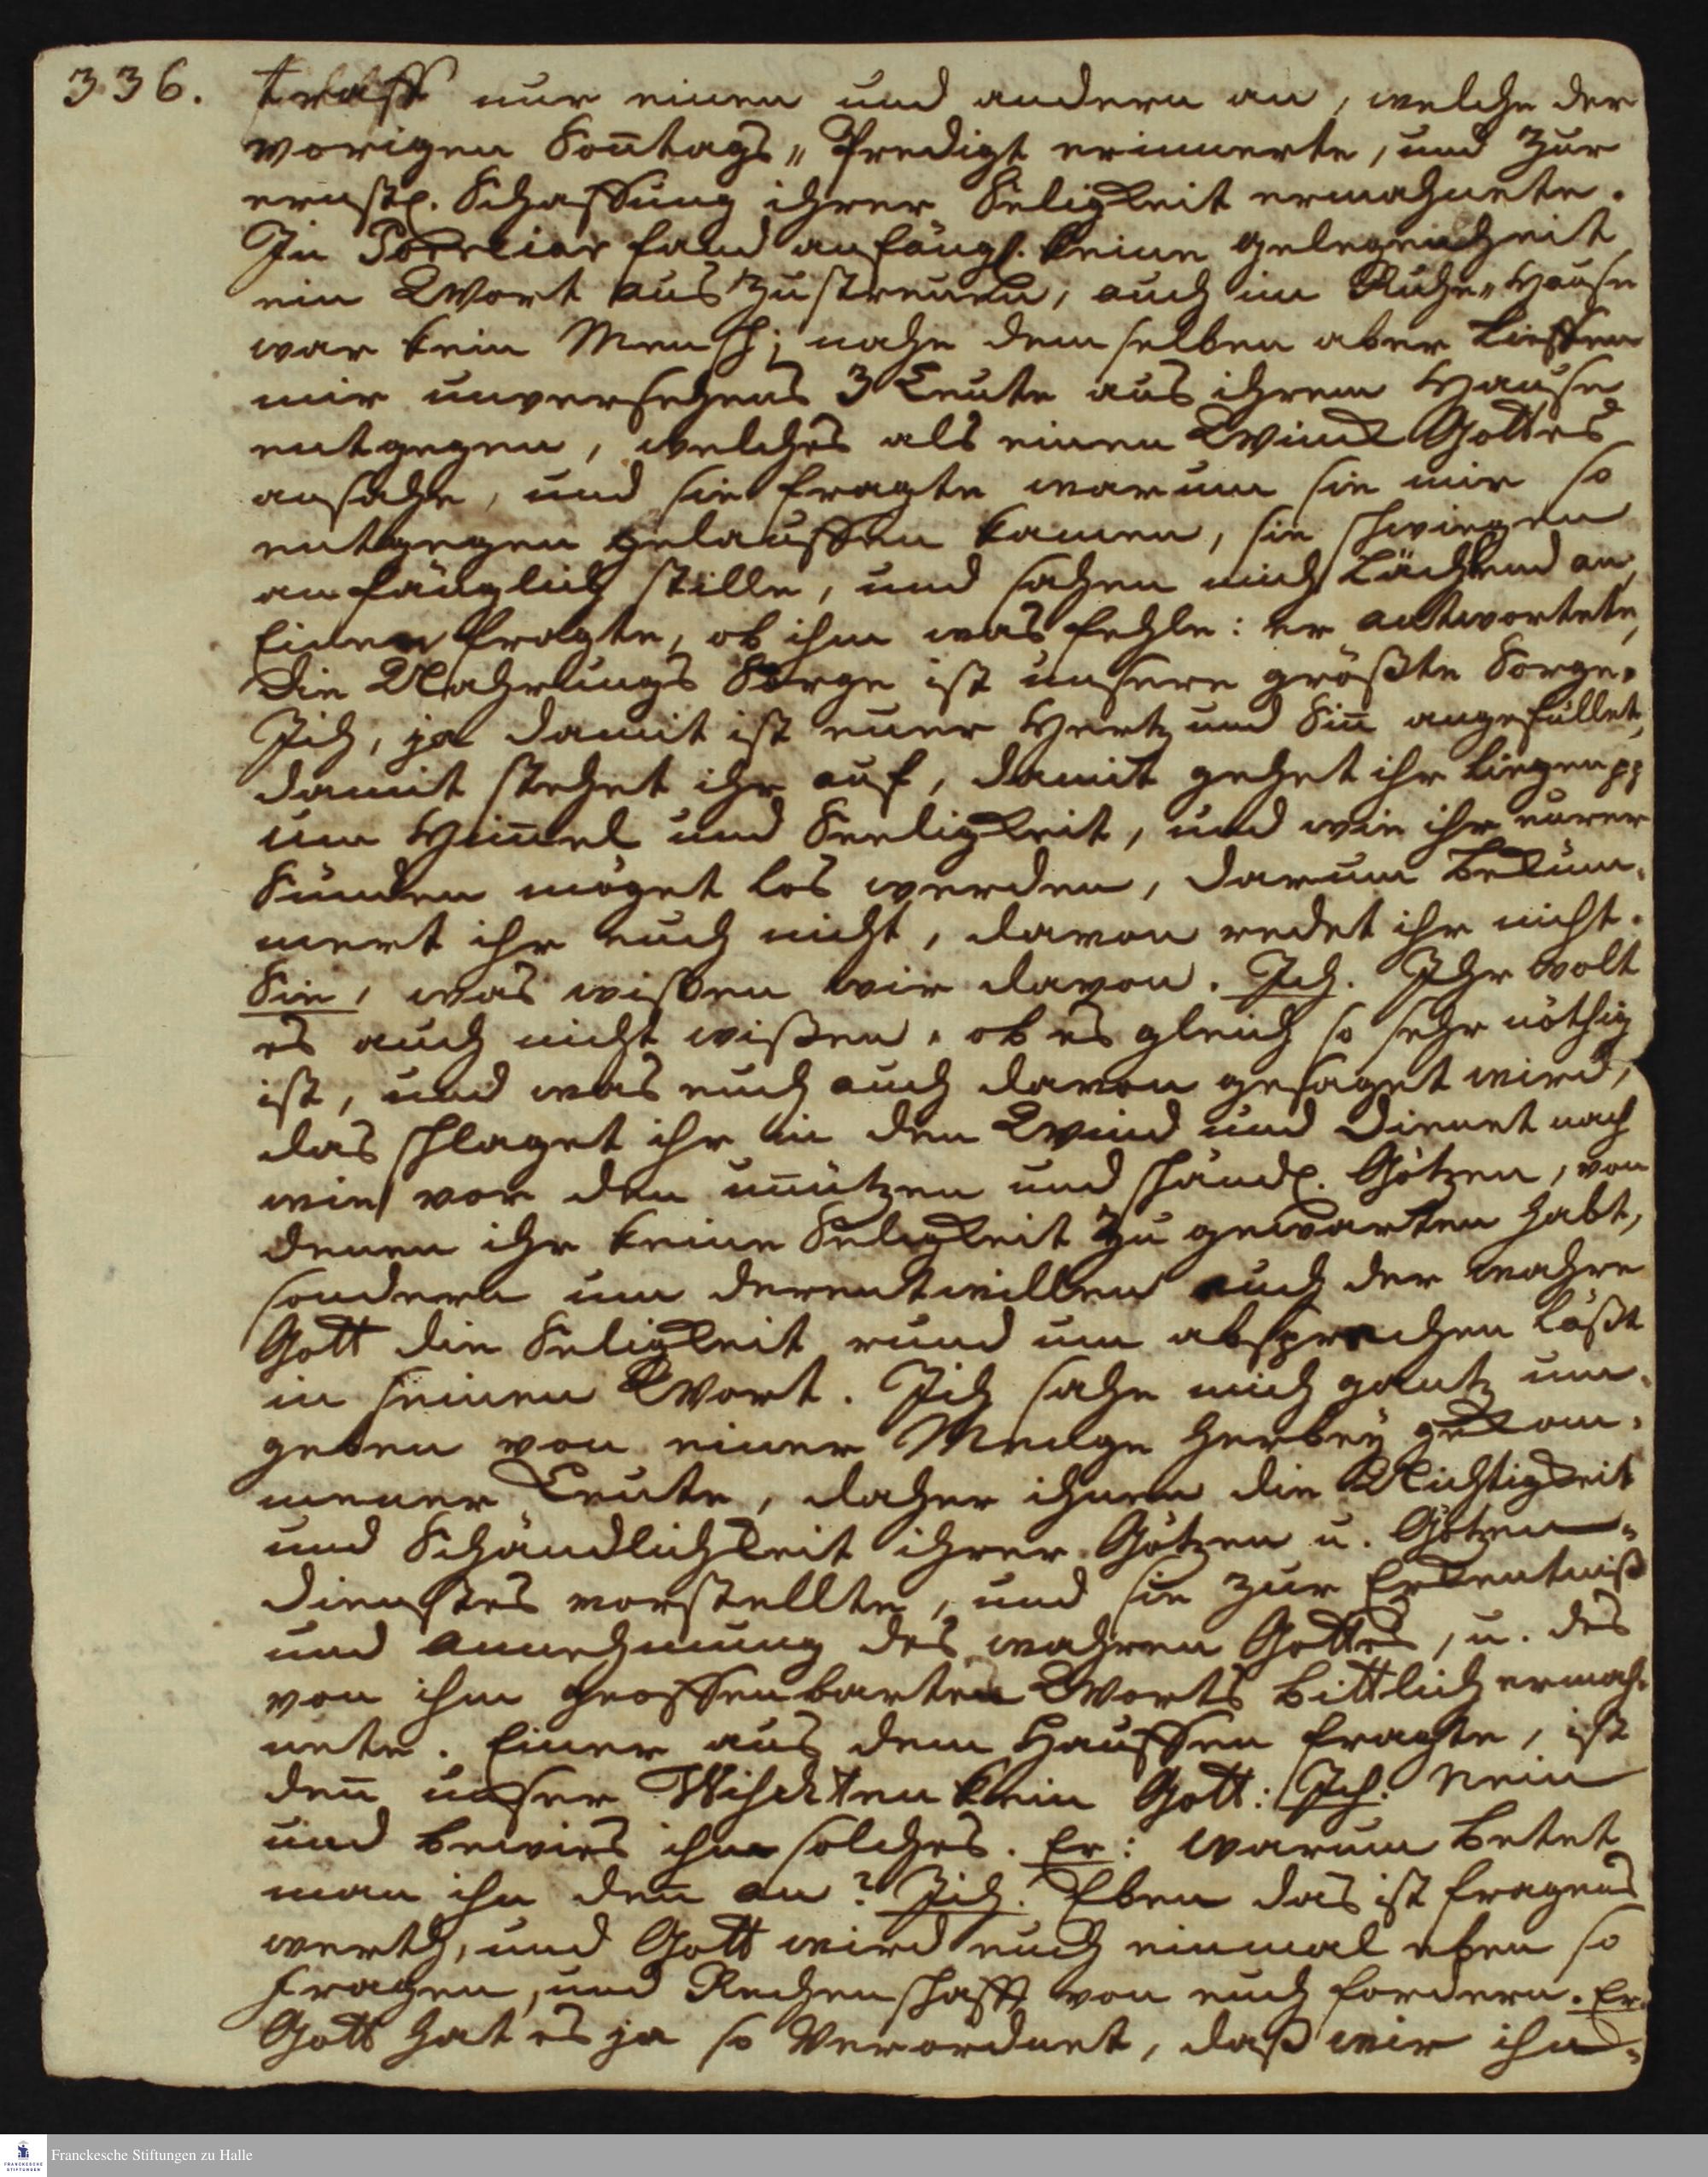 336.
traff nur einen und andern an, welche der
vorigen Soñtags„Predigt erinnerte, und zur
ernstl. Schaffung ihrer Seligkeit ermahnete.
In Porreiar fand anfängl. keine gelegenheit
ein Wort auszustreuen, auch im Ruhe„Hause
war kein Mensch; nahe demselben aber lieffen
mir unversehens 3 Leute aus ihrem Hause
entgegen, welches als einen Winck Gottes
ansahe, und sie fragte warum sie mir so
entgegen gelauffen kamen, sie schwiegen
anfänglich stille, und sahen mich lächlend an,
Einen fragte, ob ihm was fehle: er antwortete,
Die Nahrungs Sorge ist unsere größte Sorge.
Ich, ja damit ist euer Hertz und Siñ angefüllet,
damit stehet ihr auf, damit gehet ihr liegen pp
um Him̃el und Seeligkeit, und wie ihr eurer
Sünden möget los werden, darum beküm¬
mert ihr euch nicht, davon redet ihr nicht.
Sie, was wißen wir davon. Ich. Ihr wolt
es auch nicht wißen, ob es gleich so sehr nöthig
ist, und was euch auch davon gesaget wird,
das schlaget ihr in den Wind und dienet nach
wie vor den uñützen und schändl. Götzen, von
denen ihr keine Seligkeit zu gewarten habt,
sondern um derentwillen euch der wahre
Gott die Seligkeit rund um absprechen läßt
in seinen Wort. Ich sahe mich gantz um¬
geben von einer Menge herbey gekom¬
mener Leute, daher ihnen die Nichtigkeit
und Schändlichkeit ihrer Götzen u. Götzen¬
dienstes vorstellte, und sie zur Erkentniß
und annehmung des wahren Gottes, u. des
von ihm geoffenbarten Worts bittlich ermah¬
nete. Einer aus dem Hauffen fragte, ist
deñ unser Wischtnu kein Gott: Ich. Nein
und bewies ihm solches. Er: warum betet
man ihn deñ an? Ich: Eben das ist fragens
werth, und Gott wird euch einmal eben so
fragen, und Rechenschafft von euch fordern. Er.
Gott hat es ja so verordnet, daß wir ihn¬
Franckesche Stiftungen zu Halle
FRANCKESCHE
STIFTUNGEN